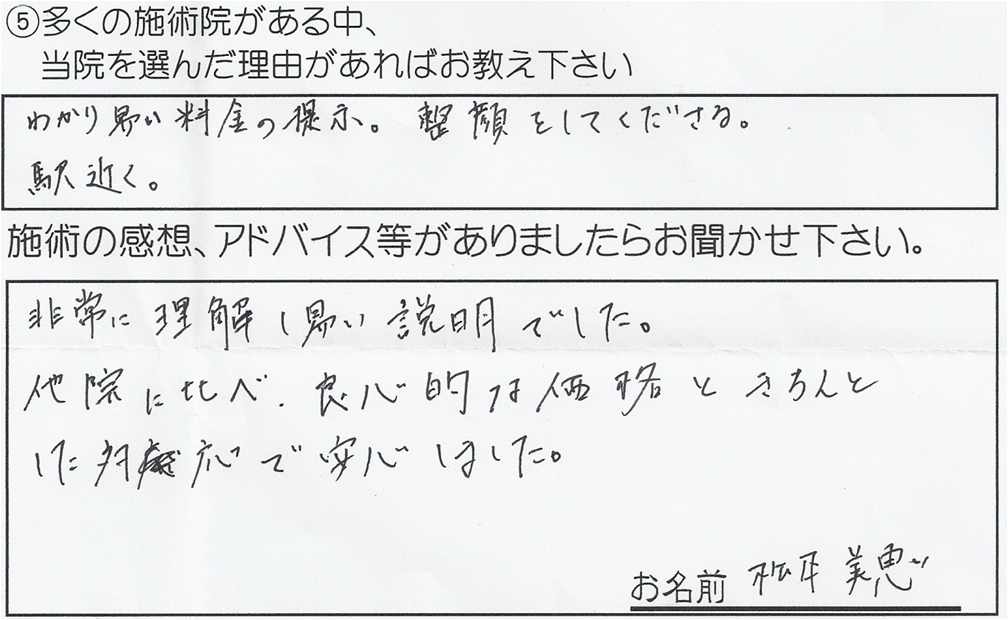 ⑤多くの施術院がある中、
当院を選んだ理由があればお教え下さい
わかり易い料金の提示。整顔をしてくださる。
駅近く。
施術の感想、アドバイス等がありましたらお聞かせ下さい。
非常に理解し易い説明でした。
他院に比べ、良心的な価格ときちんと
した対応で安心しました。
お名前 松平 美恵